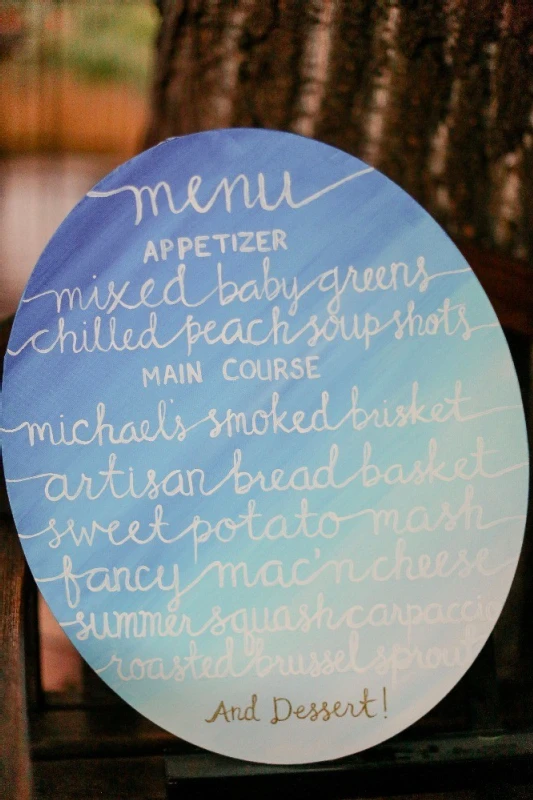 menu
APPETIZER
mixed baby greens
chilled peach soup shots
MAIN COURSE
michael's smoked brisket
artisan bread basket
sweet potato mash
fancy mac'n cheese
summer squash carpaccio
roasted brussel sprouts
And Dessert!